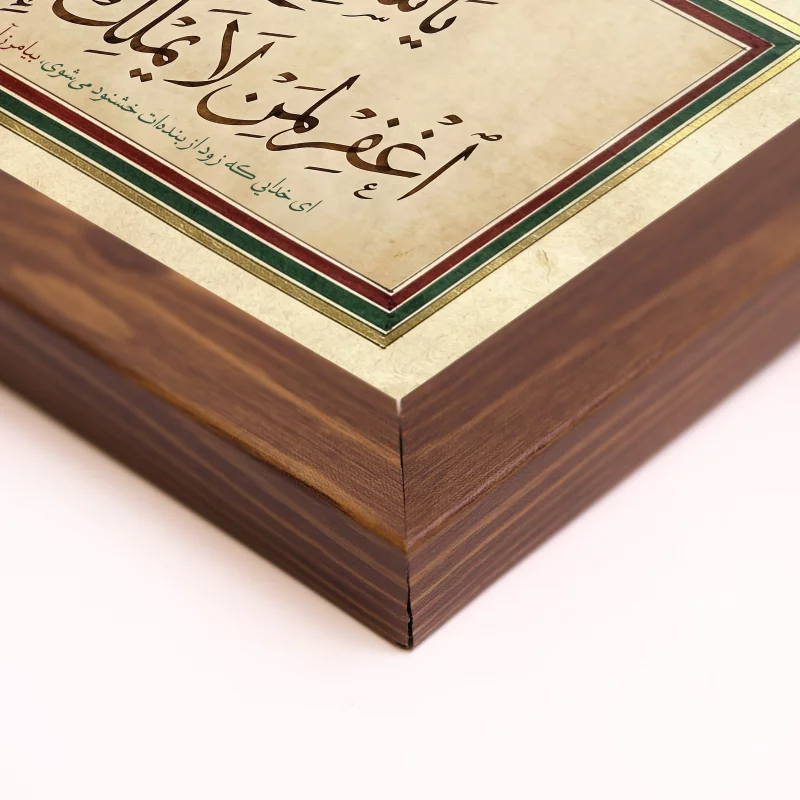 اُغْفِرْ لِمَنْ لَا يَمْلِكُ
ای خدایی که زود از بنده‌ات خشنود می‌شوی، بیامرز